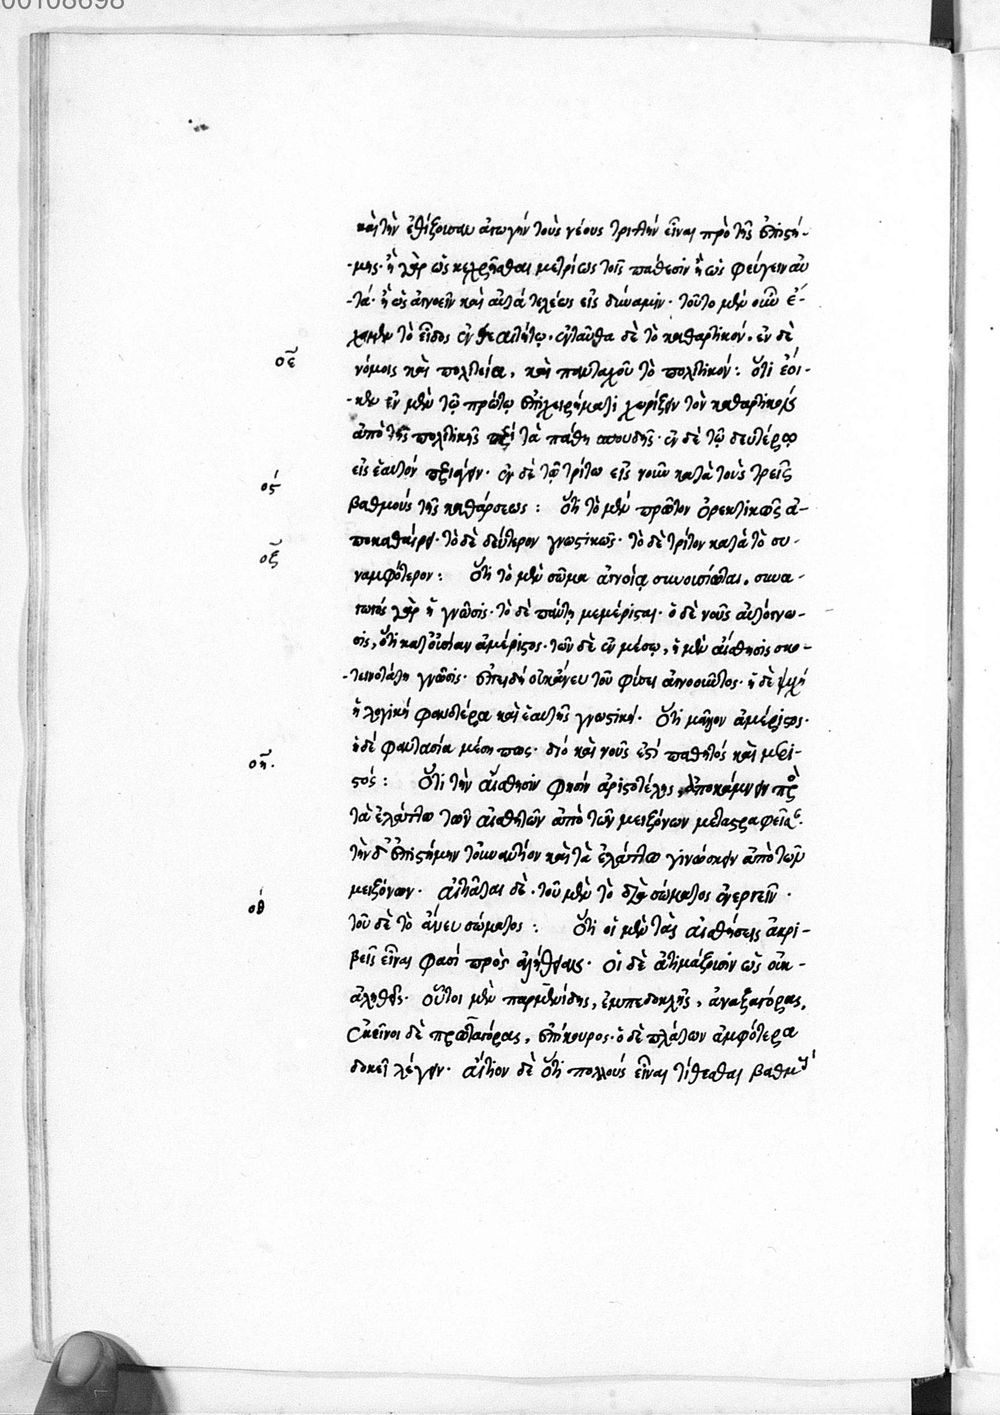 00108698
καὶ τὴν ἐθίζουσαν ἀγωγὴν τοὺς νέους τριττὴν εἶναι πρὸ τῆς ἐπιστή-
μης· ἢ γὰρ ὡς κεχρῆσθαι μετρίως τοῖς πάθεσιν ἢ ὡς φεύγειν αὐ-
τά· ἢ ὡς ἀγνοεῖν καὶ αὐτὰ τελέως εἰς δύναμιν· τοῦτο μὲν οὖν ἐ-
τὸ εἶδος ἐν θεαιτήτῳ· ἐνταῦθα δὲ τὸ καθαρτικόν· ἐν δὲ
οε νόμοις καὶ πολιτείᾳ, καὶ πανταχοῦ τὸ πολιτικόν: ὅτι ἔοι-
κεν ἐν μὲν τῷ πρώτῳ ἐπιχειρήματι χωρίζειν τὸν καθαρτικὸν
ἀπὸ τῆς πολιτικῆς περὶ τὰ πάθη σπουδῆς· ἐν δὲ τῷ δευτέρῳ
εἰς ἑαυτὸν περιάγειν· ἐν δὲ τῷ τρίτῳ εἰς νοῦν κατὰ τοὺς τρεῖς
ος βαθμοὺς τῆς καθάρσεως: ὅτι τὸ μὲν πρῶτον ὀρεκτικῶς ἀ-
ποκαθαίρει· τὸ δὲ δεύτερον γνωστικῶς· τὸ δὲ τρίτον κατὰ τὸ συ-
οζ ναμφότερον: ὅτι τὸ μὲν σῶμα ἀγνοίᾳ συνουσίωται. συνα-
γωγὸς γὰρ ἡ γνῶσις· τὸ δὲ πάντῃ μεμέρισται· ὁ δὲ νοῦς αὐτόγνω-
σις, ὅτι κατ' οὐσίαν ἀμέριστος· τῶν δὲ ἐν μέσῳ, ἡ μὲν αἴσθησις σκο-
τεινοτάτη γνῶσις· ἐπειδὴ οὐκ ἄνευ τοῦ φύσει ἀγνοοῦντος· ἡ δὲ ψυχὴ
ἡ λογικὴ φανοτέρα καὶ ἑαυτῆς γνωστική· ὅτι μᾶλλον ἀμέριστος·
ἡ δὲ φαντασία μέση πως· διὸ καὶ νοῦς ἐστὶ παθητὸς καὶ μερι-
οη. στός: ὅτι τὴν αἴσθησίν φησιν ἀριστοτέλης ἀποκάμνειν πρὸς
τὰ ἐλάττω τῶν αἰσθητῶν ἀπὸ τῶν μειζόνων μεταστραφεῖσαν·
τὴν δ' ἐπιστήμην τοὐναντίον καὶ τὰ ἐλάττω γινώσκειν ἀπὸ τῶν
μειζόνων· αἰτιᾶται δὲ· τοῦ μὲν τὸ διὰ σώματος ἐνεργεῖν·
οθ τοῦ δὲ τὸ ἄνευ σώματος: ὅτι οἱ μὲν τὰς αἰσθήσεις ἀκρι-
βεῖς εἶναι φασὶ πρὸς ἀλήθειαν· οἱ δὲ ἀτιμάζουσιν ὡς οὐκ
ἀληθεῖς· οὗτοι μὲν παρμενίδης, ἐμπεδοκλῆς, ἀναξαγόρας,
ἐκεῖνοι δὲ πρωταγόρας, ἐπίκουρος· ὁ δὲ πλάτων ἀμφότερα
δοκεῖ λέγειν· αἴτιον δὲ ὅτι πολλοὺς εἶναι τίθεσθαι βαθμοὺς